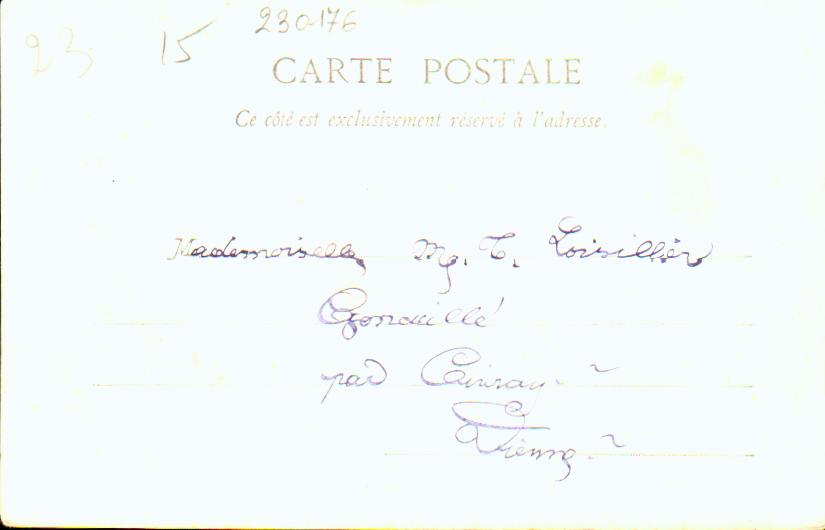 230176
23 15
CARTE POSTALE
Ce côté est exclusivement réservé à l'adresse.
Mademoiselle Mg. T. Loisillier
Genouillé
par Civray
Vienne